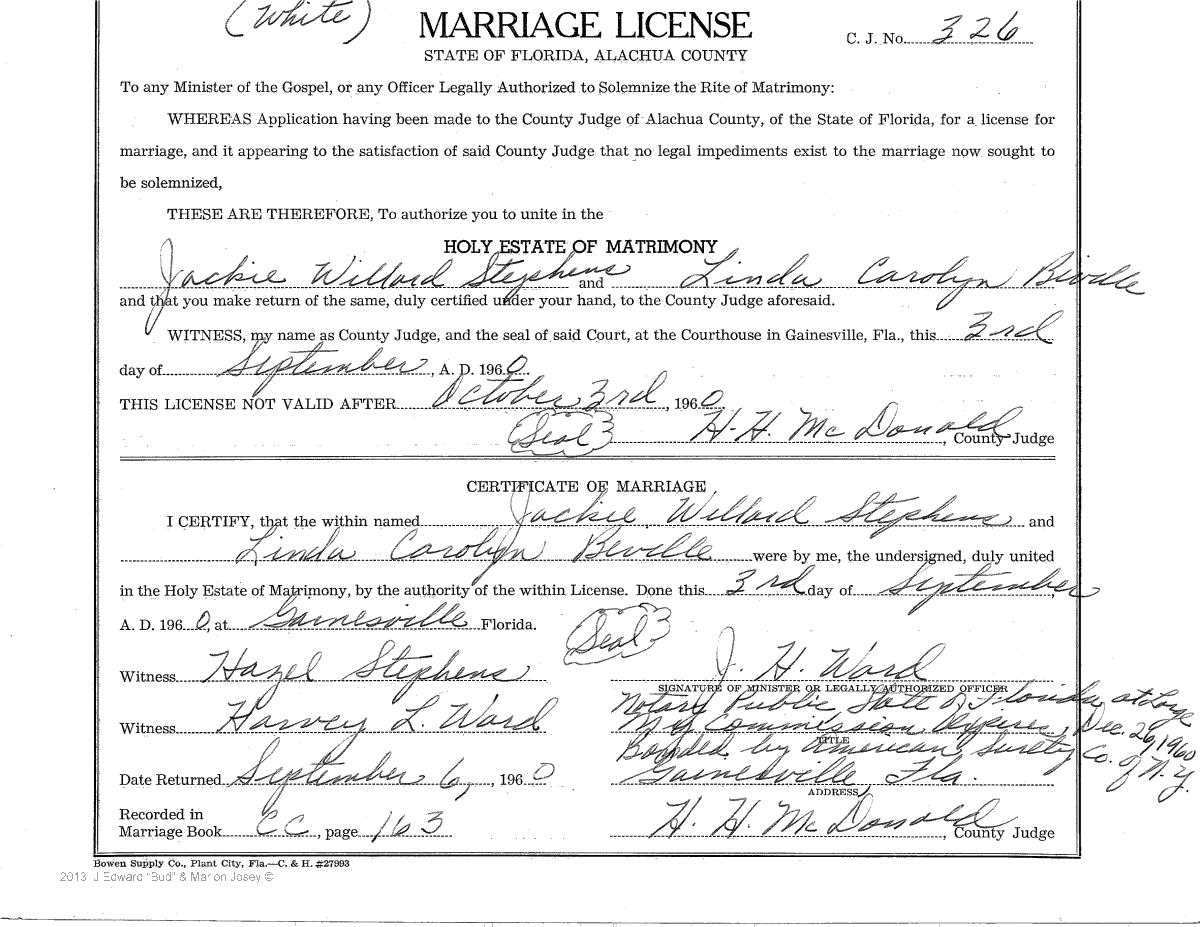 (White)
MARRIAGE LICENSE
C. J. No. 326
STATE OF FLORIDA, ALACHUA COUNTY
To any Minister of the Gospel, or any Officer Legally Authorized to Solemnize the Rite of Matrimony:
WHEREAS Application having been made to the County Judge of Alachua County, of the State of Florida, for a license for
marriage, and it appearing to the satisfaction of said County Judge that no legal impediments exist to the marriage now sought to
be solemnized,
THESE ARE THEREFORE, To authorize you to unite in the
HOLY ESTATE OF MATRIMONY
Jackie Willard Stephens and Linda Carolyn Beville
and that you make return of the same, duly certified under your hand, to the County Judge aforesaid.
WITNESS, my name as County Judge, and the seal of said Court, at the Courthouse in Gainesville, Fla., this 3rd
day of September, A. D. 1960.
THIS LICENSE NOT VALID AFTER October 3rd, 1960
(Seal) H. H. McDonald, County Judge
CERTIFICATE OF MARRIAGE
I CERTIFY, that the within named Jackie Willard Stephens and
Linda Carolyn Beville were by me, the undersigned, duly united
in the Holy Estate of Matrimony, by the authority of the within License. Done this 3rd day of September,
A. D. 1960, at Gainesville Florida.
(Seal)
Witness Hazel Stephens J. H. Ward
SIGNATURE OF MINISTER OR LEGALLY AUTHORIZED OFFICER
Notary Public, State of Florida at Large
Witness Harvey L. Ward My Commission Expires, Dec. 26, 1960
TITLE
Bonded by American Surety Co. of N.Y.
Date Returned September 6, 1960 Gainesville Fla.
ADDRESS
Recorded in
Marriage Book CC, page 163 H. H. McDonald, County Judge
Bowen Supply Co., Plant City, Fla.—C. & H. #27993
2013 J Edward "Bud" & Marion Josey ©